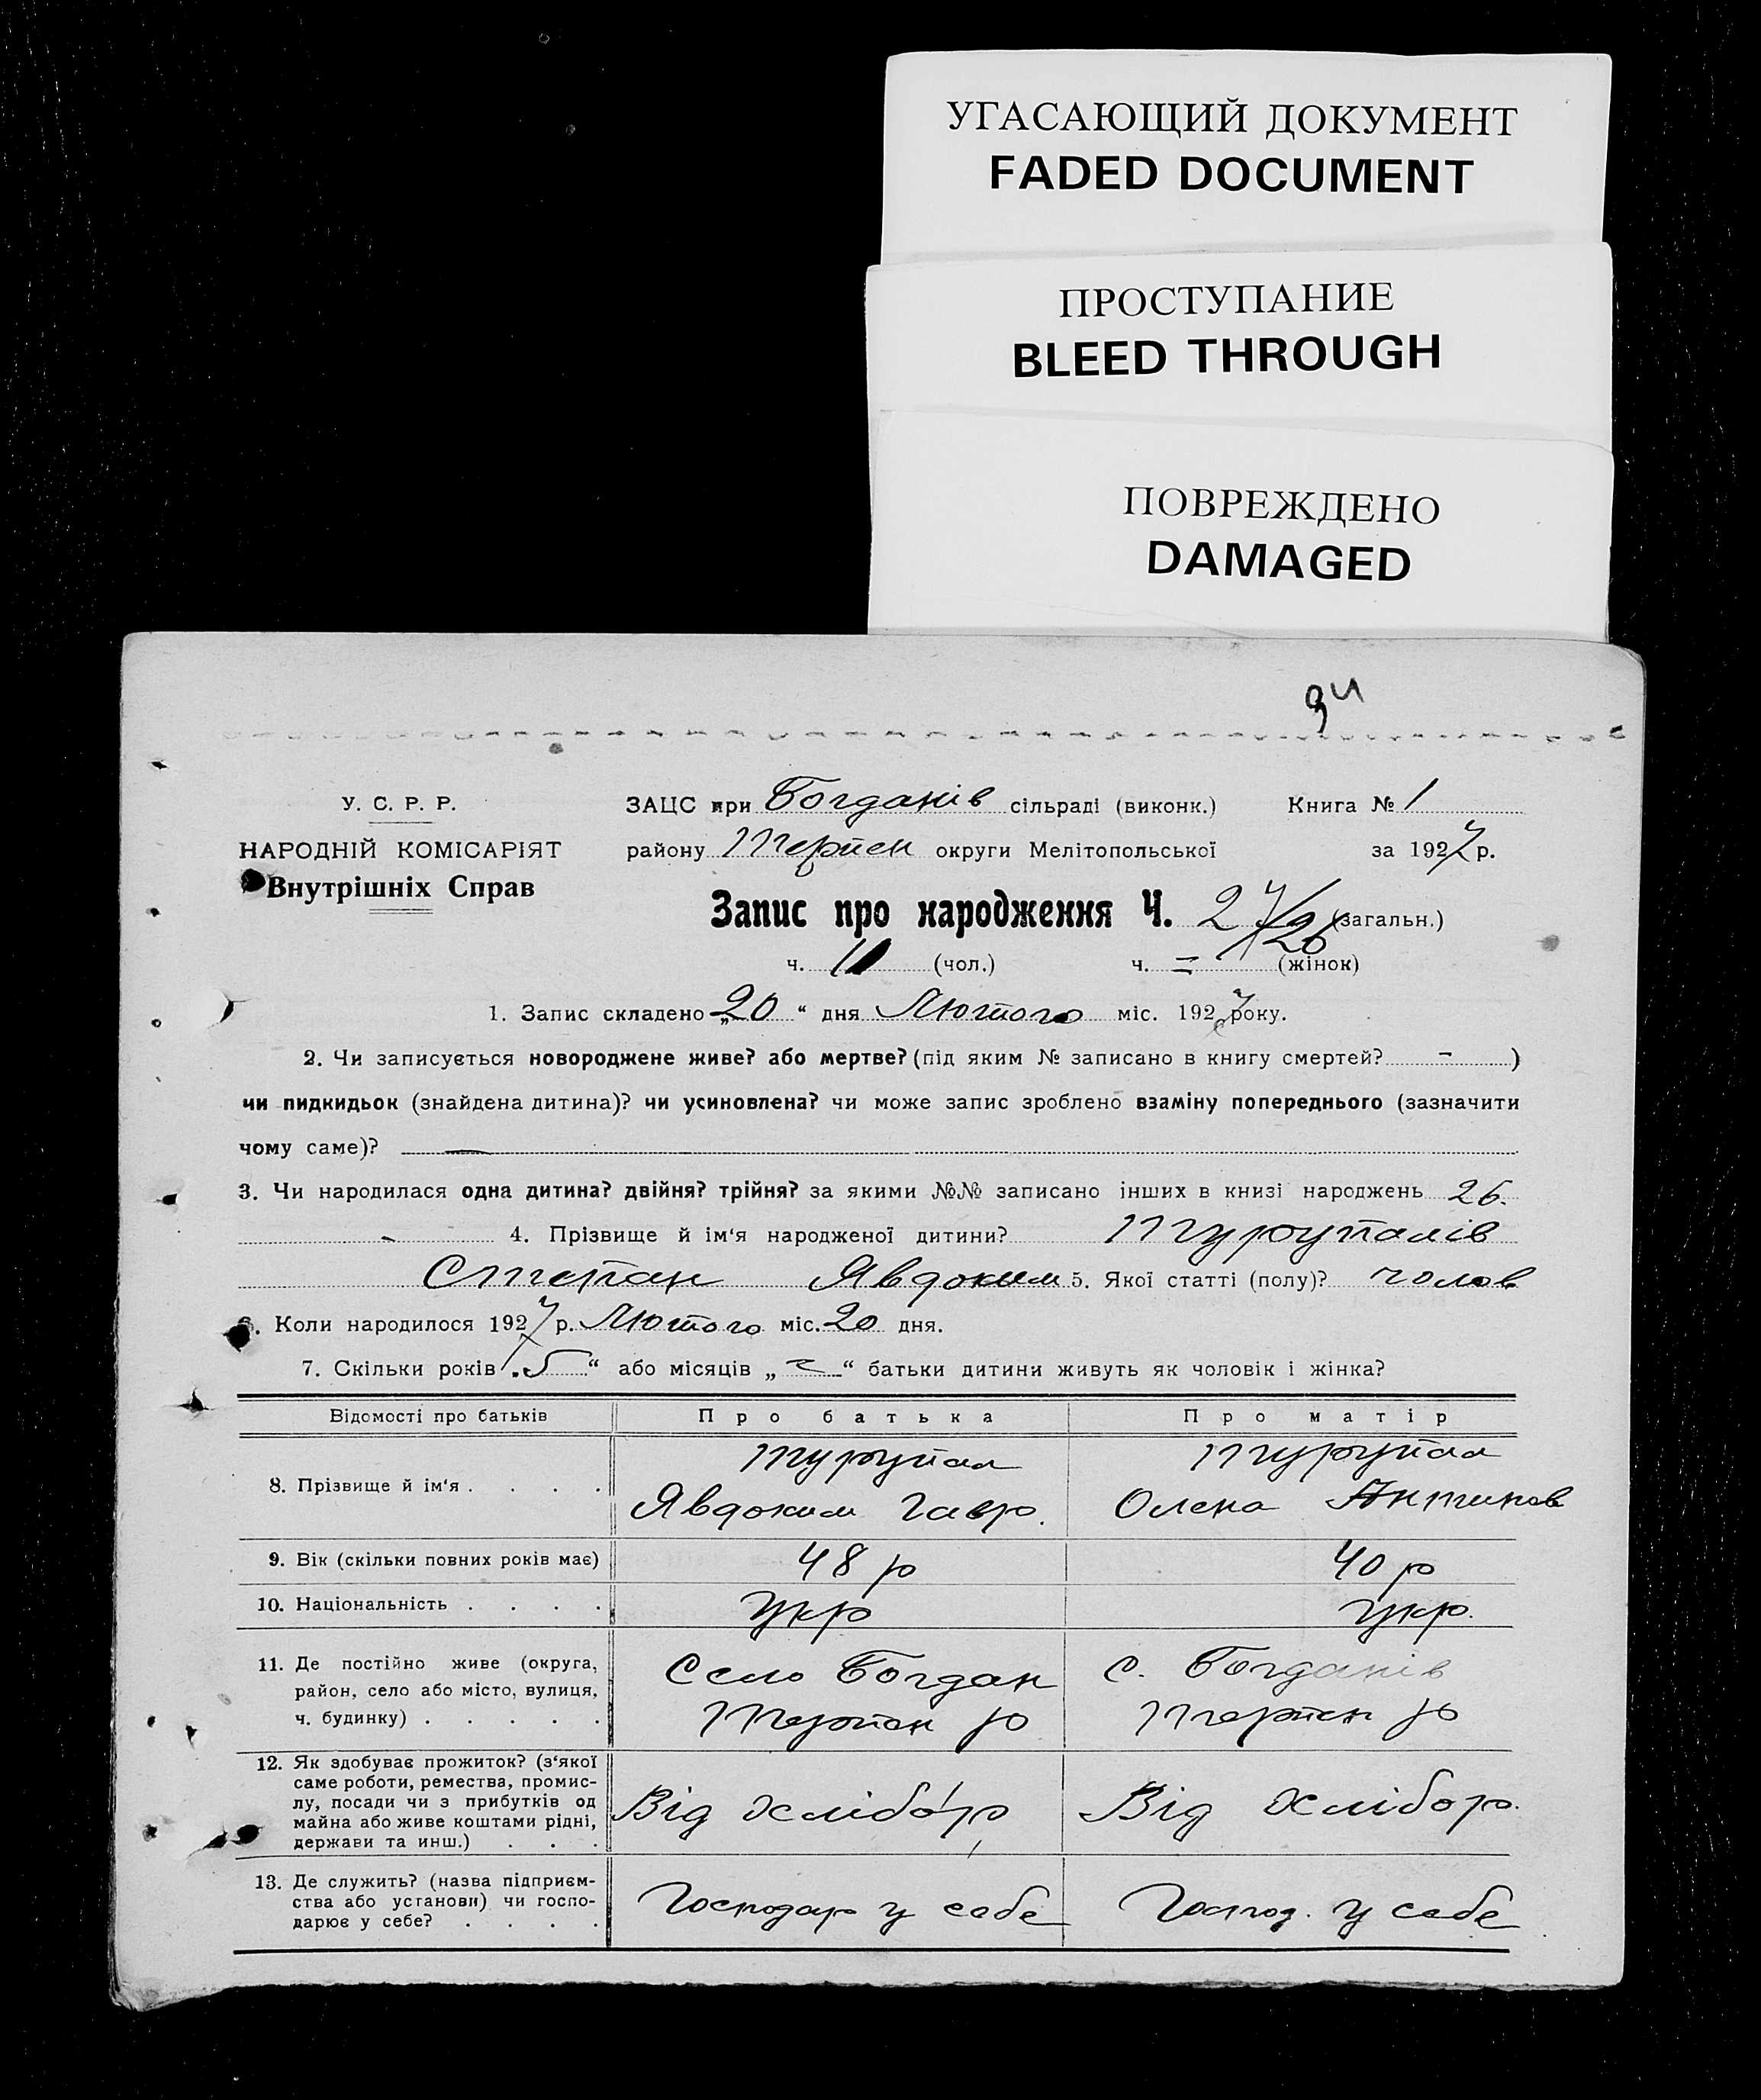 УГАСАЮЩИЙ ДОКУМЕНТ
FADED DOCUMENT
ПРОСТУПАНИЕ
BLEED THROUGH
ПОВРЕЖДЕНО
DAMAGED
94
У. С. Р. Р.
НАРОДНІЙ КОМІСАРІЯТ
Внутрішніх Справ
ЗАЦС при Богданів сільраді (виконк.) Книга № 1
району Терпен округи Мелітопольської за 1927 р.
Запис про народження Ч. 27/26 (загальн.)
ч. 11 (чол.) ч. = (жінок)
1. Запис складено „20“ дня Лютого міс. 1927 року.
2. Чи записується новороджене живе? або мертве? (під яким № записано в книгу смертей? - )
чи пидкидьок (знайдена дитина)? чи усиновлена? чи може запис зроблено взаміну попереднього (зазначити
чому саме)? —
3. Чи народилася одна дитина? двійня? трійня? за якими №№ записано інших в книзі народжень 26.
- 4. Прізвище й ім'я народженої дитини? Турупалів
Степан Явдоким 5. Якої статті (полу)? чолов
6. Коли народилося 1927 р. Лютого міс. 20 дня.
7. Скільки років „5“ або місяців „=“ батьки дитини живуть як чоловік і жінка?
Відомості про батьків Про батька Про матір
8. Прізвище й ім'я . . . .
Турупал
Явдоким Гавр.
Турупал
Олена Антипов
9. Вік (скільки повних років має) 48 р 40 р
10. Національність . . . . Укр укр.
11. Де постійно живе (округа,
район, село або місто, вулиця,
ч. будинку) . . . . .
Село Богдан
Терпен р
с. Богданів
Терпен р
12. Як здобуває прожиток? (з'якої
саме роботи, ремества, промис-
лу, посади чи з прибутків од
майна або живе коштами рідні,
держави та инш.) . . .
Від хлібор
Від хлібор.
13. Де служить? (назва підприєм-
ства або установи) чи госпо-
дарює у себе? . . . .
Господар у себе
Господ. у себе